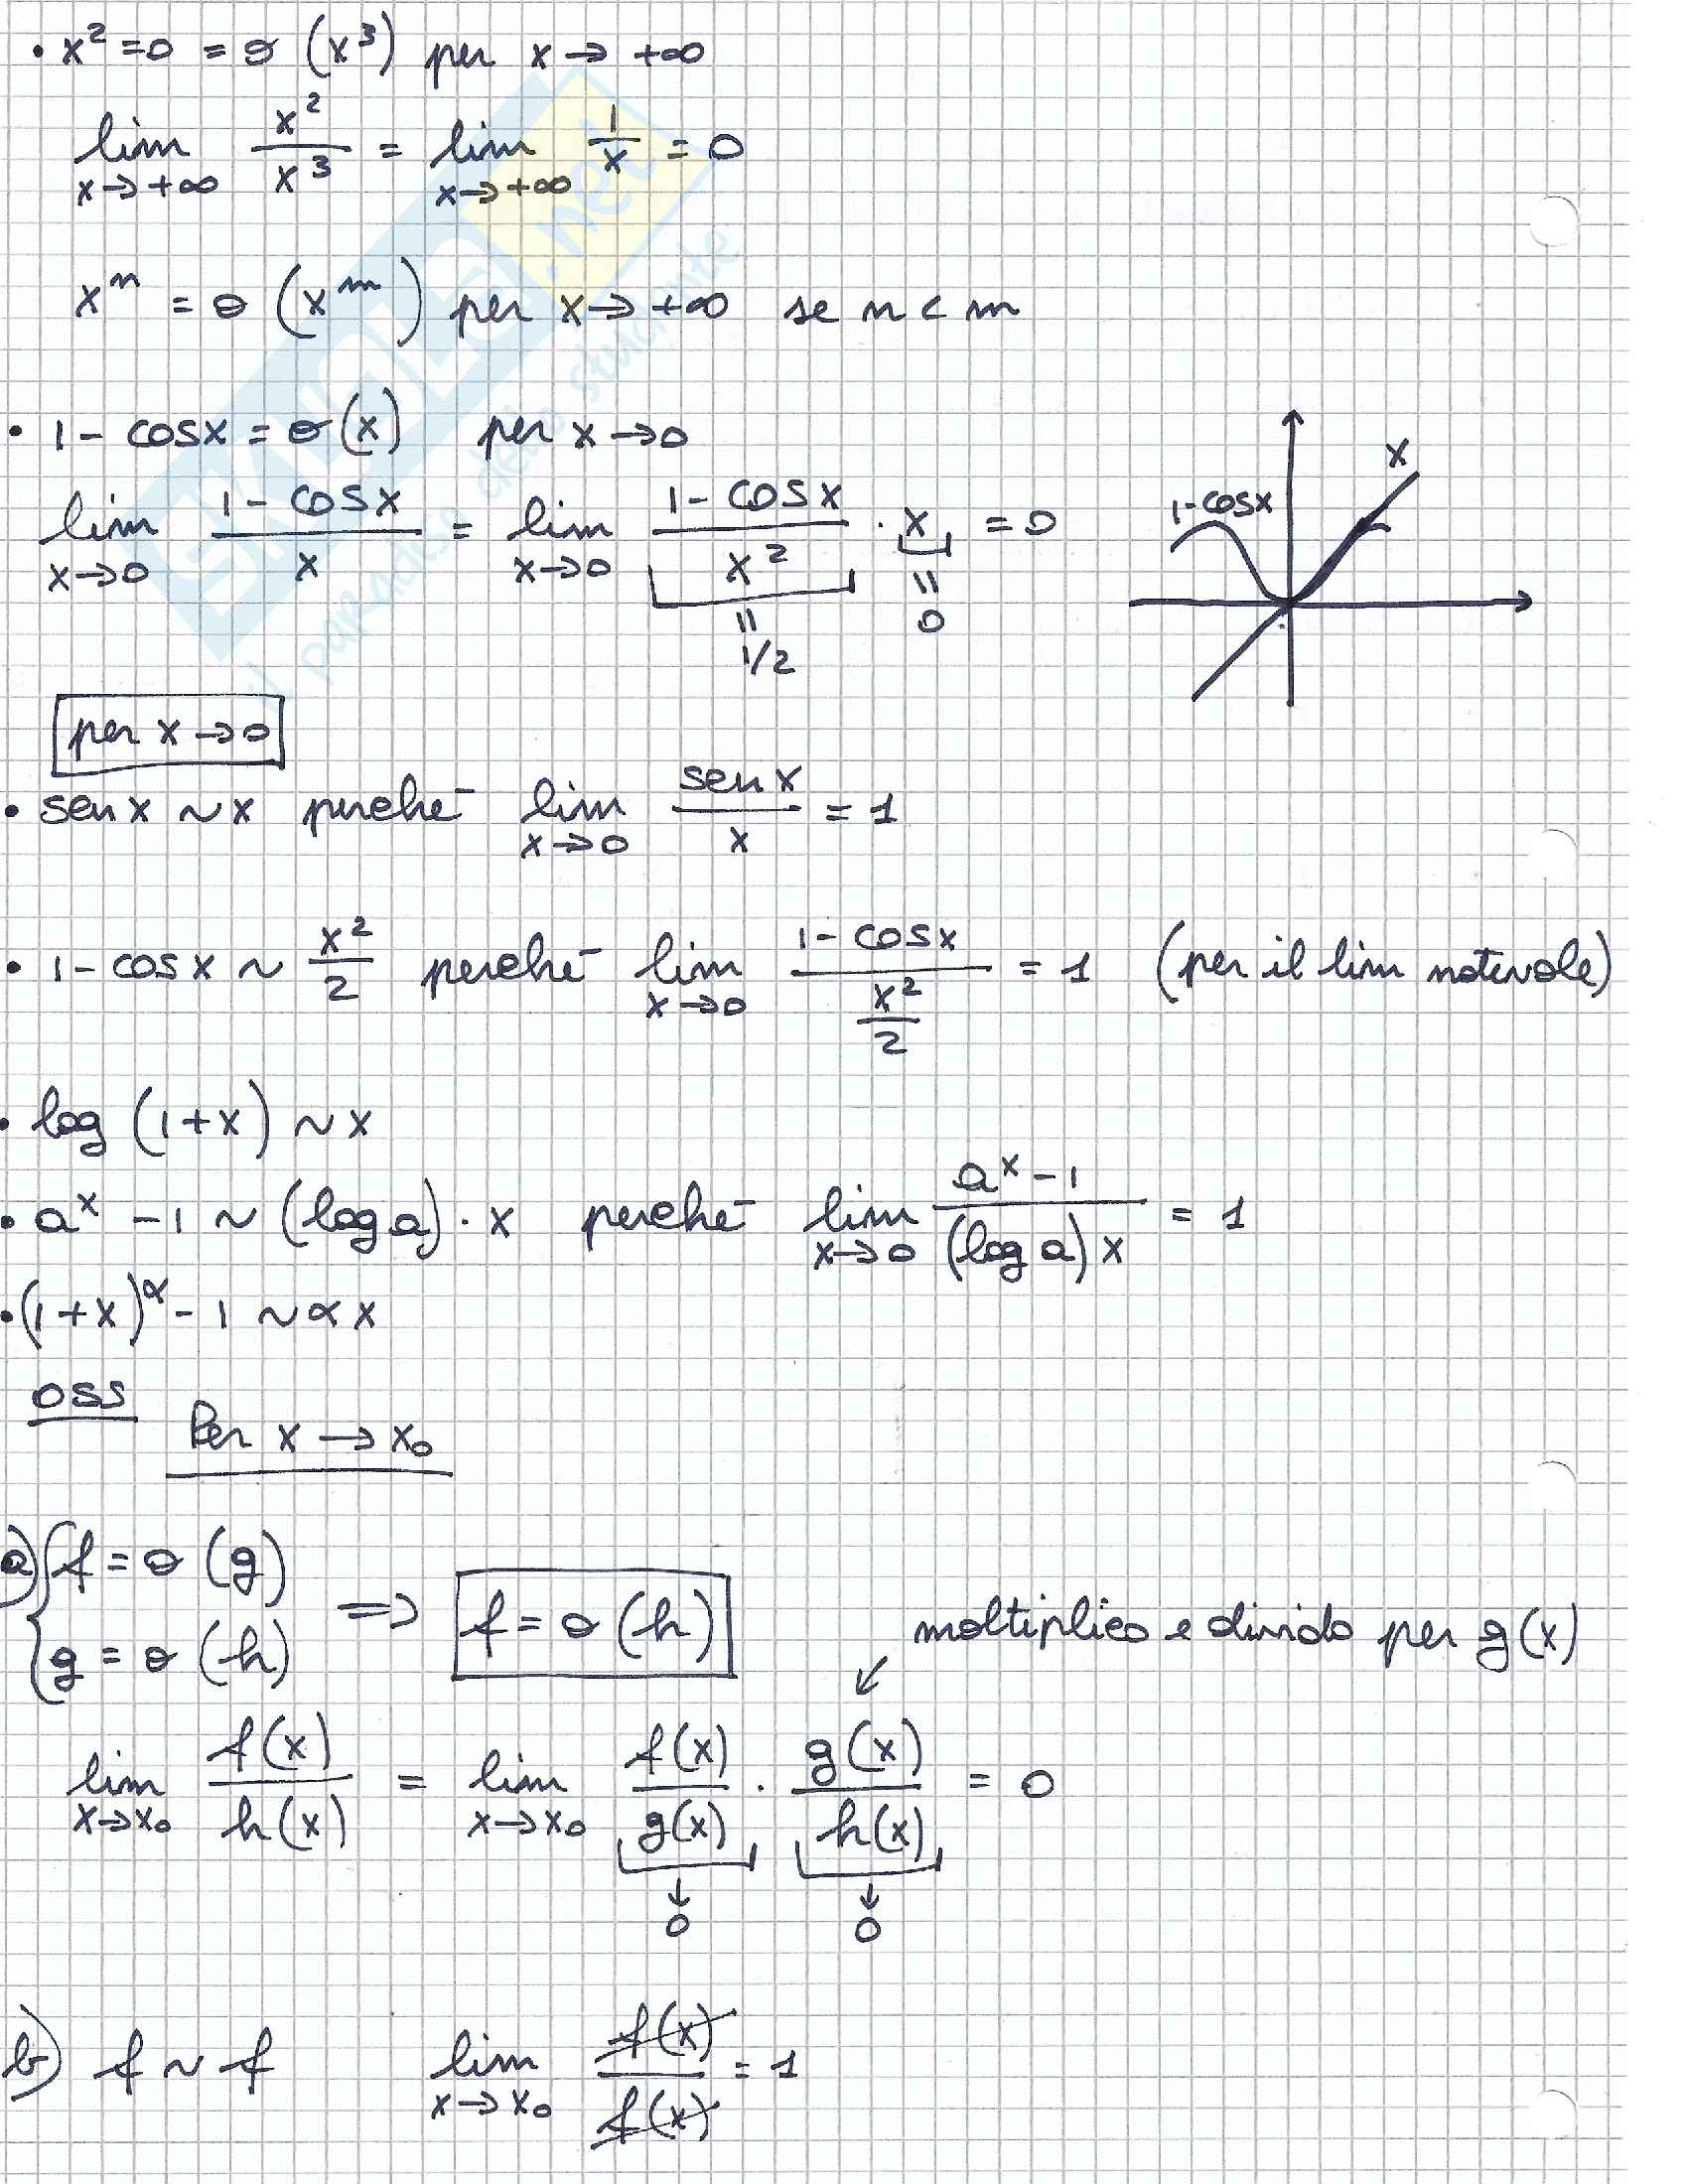 • x² = 0 = o (x³) per x → +∞
lim x→+∞ x²/x³ = lim x→+∞ 1/x = 0
xⁿ = o (xᵐ) per x → +∞ se n < m
• 1 - cosx = o(x) per x → 0
lim x→0 (1 - cosx)/x = lim x→0 (1 - cosx)/x² · x = 0
= 1/2 = 0
1-cosx
x
per x → 0
• senx ~ x perché lim x→0 senx/x = 1
• 1 - cosx ~ x²/2 perché lim x→0 (1 - cosx)/(x²/2) = 1 (per il lim notevole)
• log (1+x) ~ x
• aˣ - 1 ~ (log a) · x perché lim x→0 (aˣ - 1)/((log a) x) = 1
• (1+x)^α - 1 ~ α x
OSS
Per x → x₀
a) { f = o (g)
g = o (h) ⇒ f = o (h)
moltiplico e divido per g(x)
lim x→x₀ f(x)/h(x) = lim x→x₀ f(x)/g(x) · g(x)/h(x) = 0
↓ 0 ↓ 0
b) f ~ f lim x→x₀ f(x)/f(x) = 1
SKUOLA.net
il paradiso dello studente